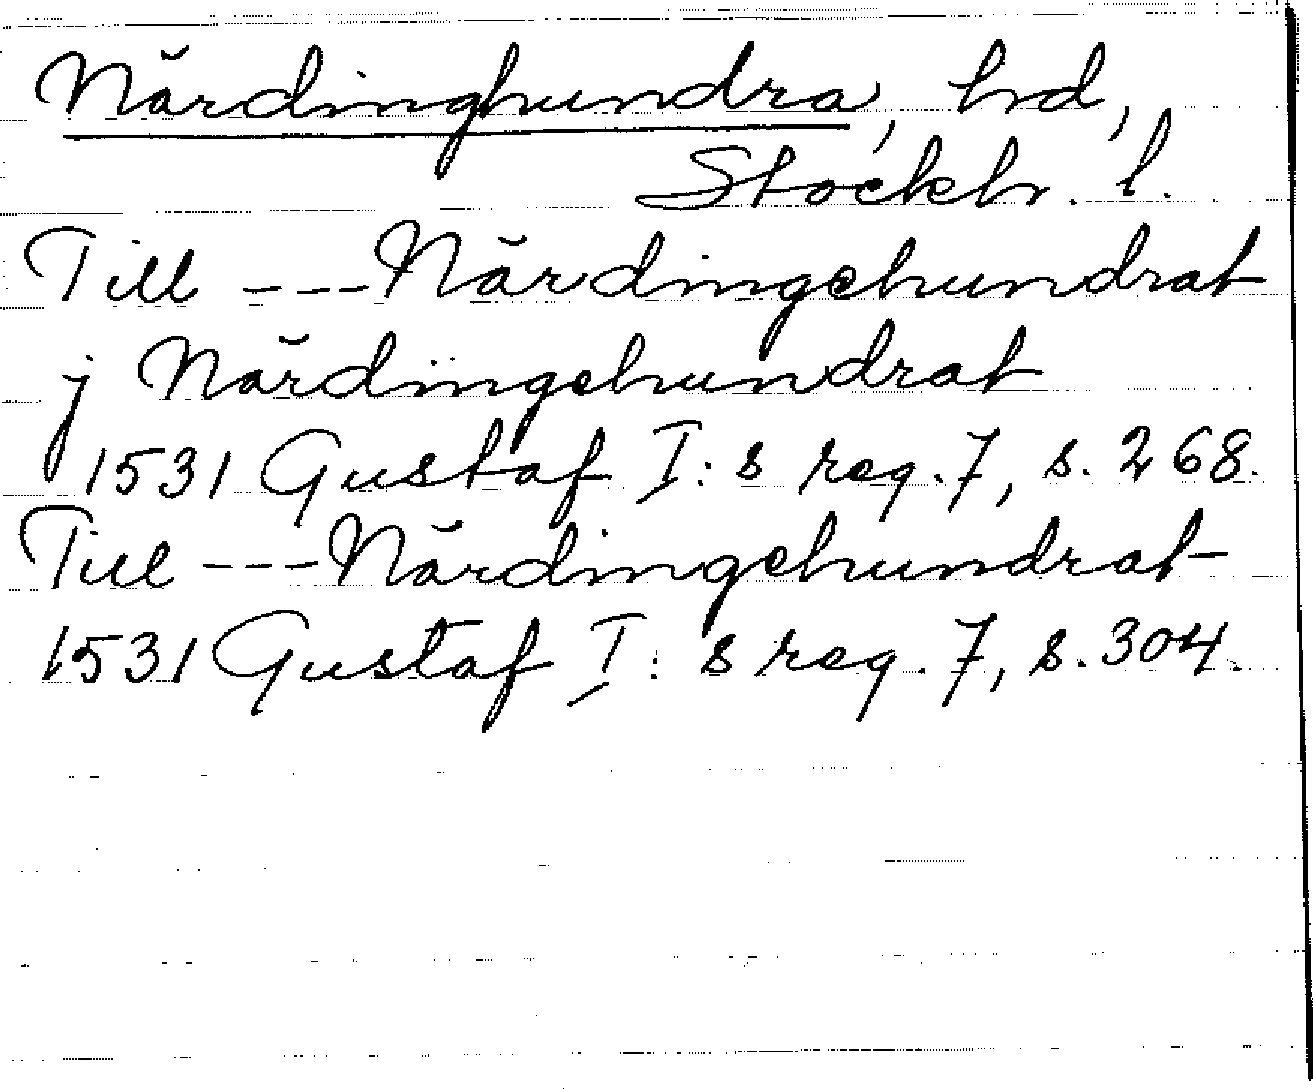 Närdinghundra, hrd,
Stockh. l.
Till --- Närdingehundrat
j Närdingehundrat
1531 Gustaf I:s reg. 7, s. 268.
Till --- Närdingehundrat
1531 Gustaf I:s reg. 7, s. 304.